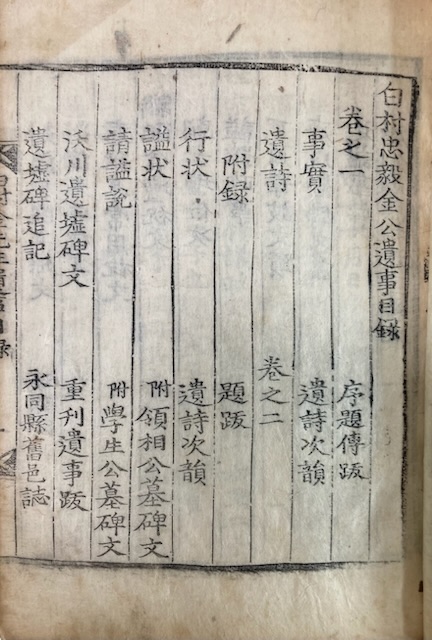 白村忠毅金公遺事目録
卷之一 序題傳跋
事實 遺詩次韻
遺詩 卷之二
附録 題跋
行状 遺詩次韻
謚状 附領相公墓碑文
請謚說 附學生公墓碑文
沃川遺墟碑文 重刊遺事跋
遺墟碑追記 永同縣舊邑誌